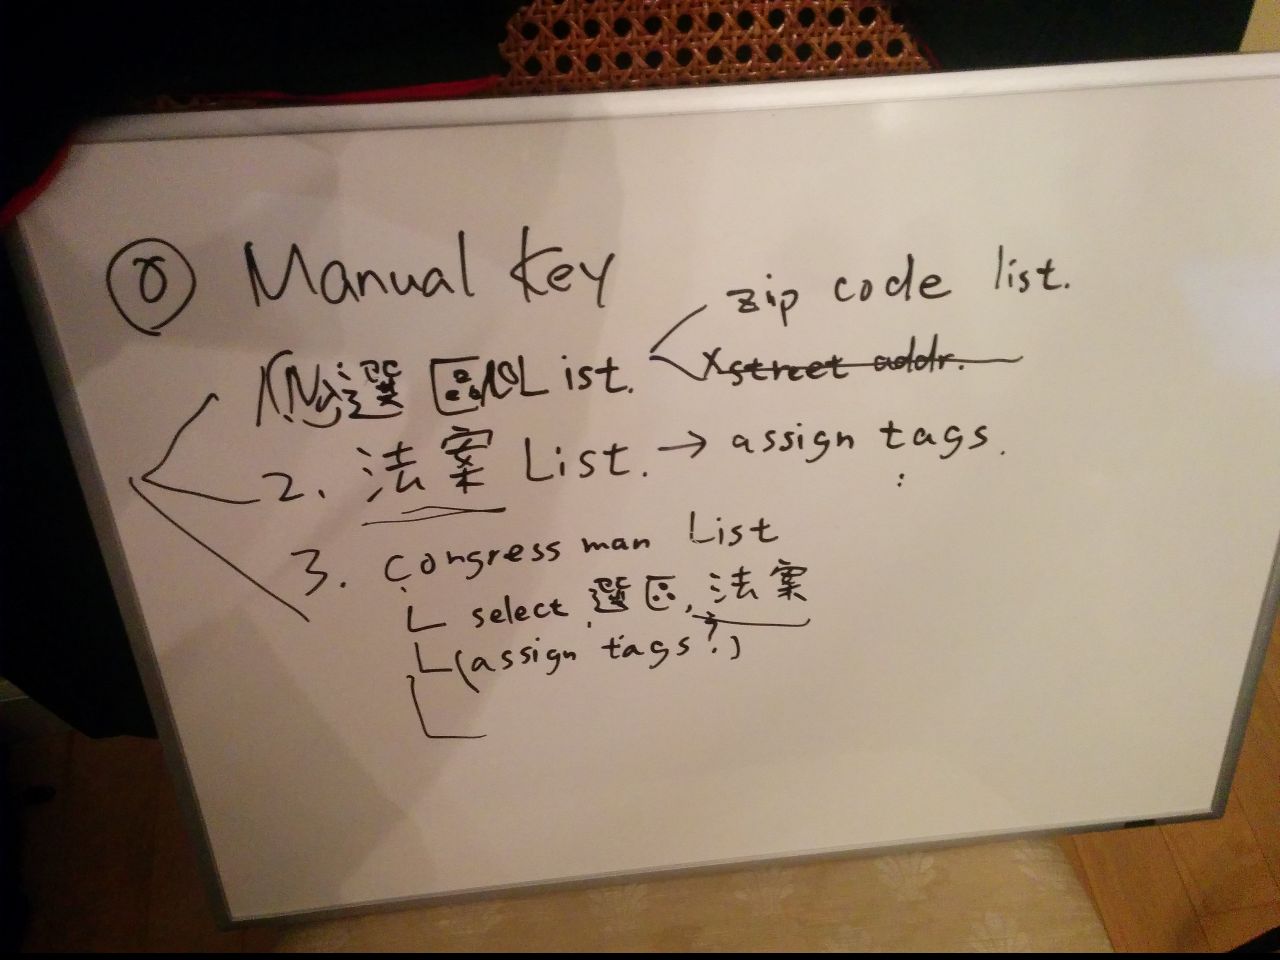 Manual Key
選區 List.
zip code list.
street addr.
2. 法案 List. → assign tags.
3. Congress man List
select 選區, 法案
(assign tags?)